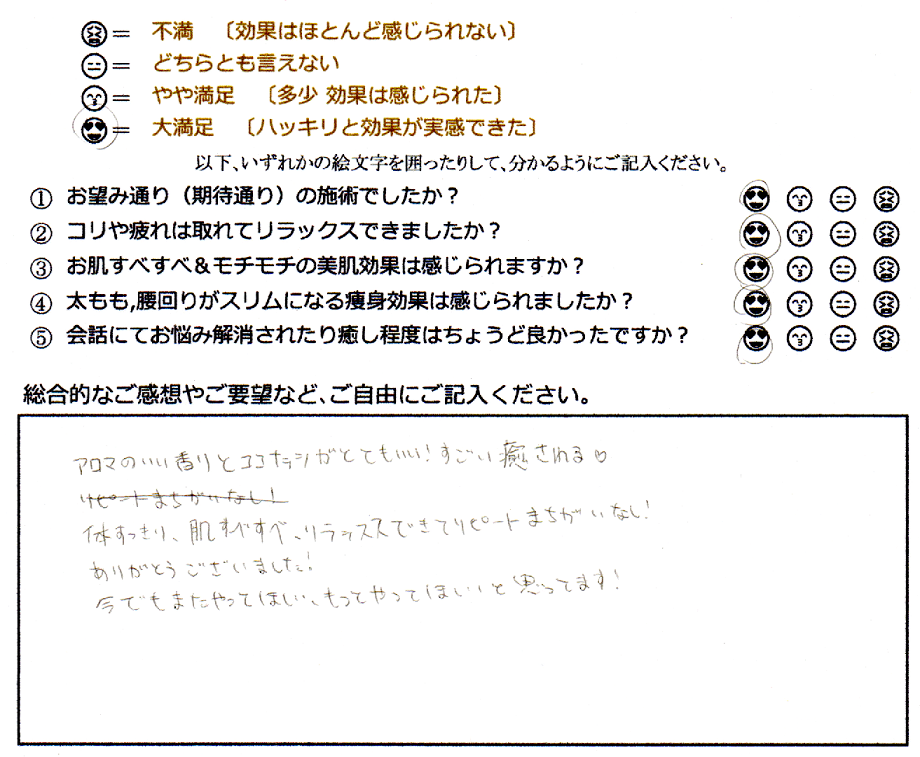 😫＝ 不満 〔効果はほとんど感じられない〕
😑＝ どちらとも言えない
😙＝ やや満足 〔多少 効果は感じられた〕
😍＝ 大満足 〔ハッキリと効果が実感できた〕
以下、いずれかの絵文字を囲ったりして、分かるようにご記入ください。
① お望み通り（期待通り）の施術でしたか？ 😍 😙 😑 😫
② コリや疲れは取れてリラックスできましたか？ 😍 😙 😑 😫
③ お肌すべすべ＆モチモチの美肌効果は感じられますか？ 😍 😙 😑 😫
④ 太もも,腰回りがスリムになる痩身効果は感じられましたか？ 😍 😙 😑 😫
⑤ 会話にてお悩み解消されたり癒し程度はちょうど良かったですか？ 😍 😙 😑 😫
総合的なご感想やご要望など、ご自由にご記入ください。
アロマのいい香りとココナッツがとてもいい！すごい癒される♡
リピートまちがいなし！
体すっきり、肌すべすべ、リラックスできてリピートまちがいなし！
ありがとうございました！
今でもまたやってほしい、もっとやってほしいと思ってます！